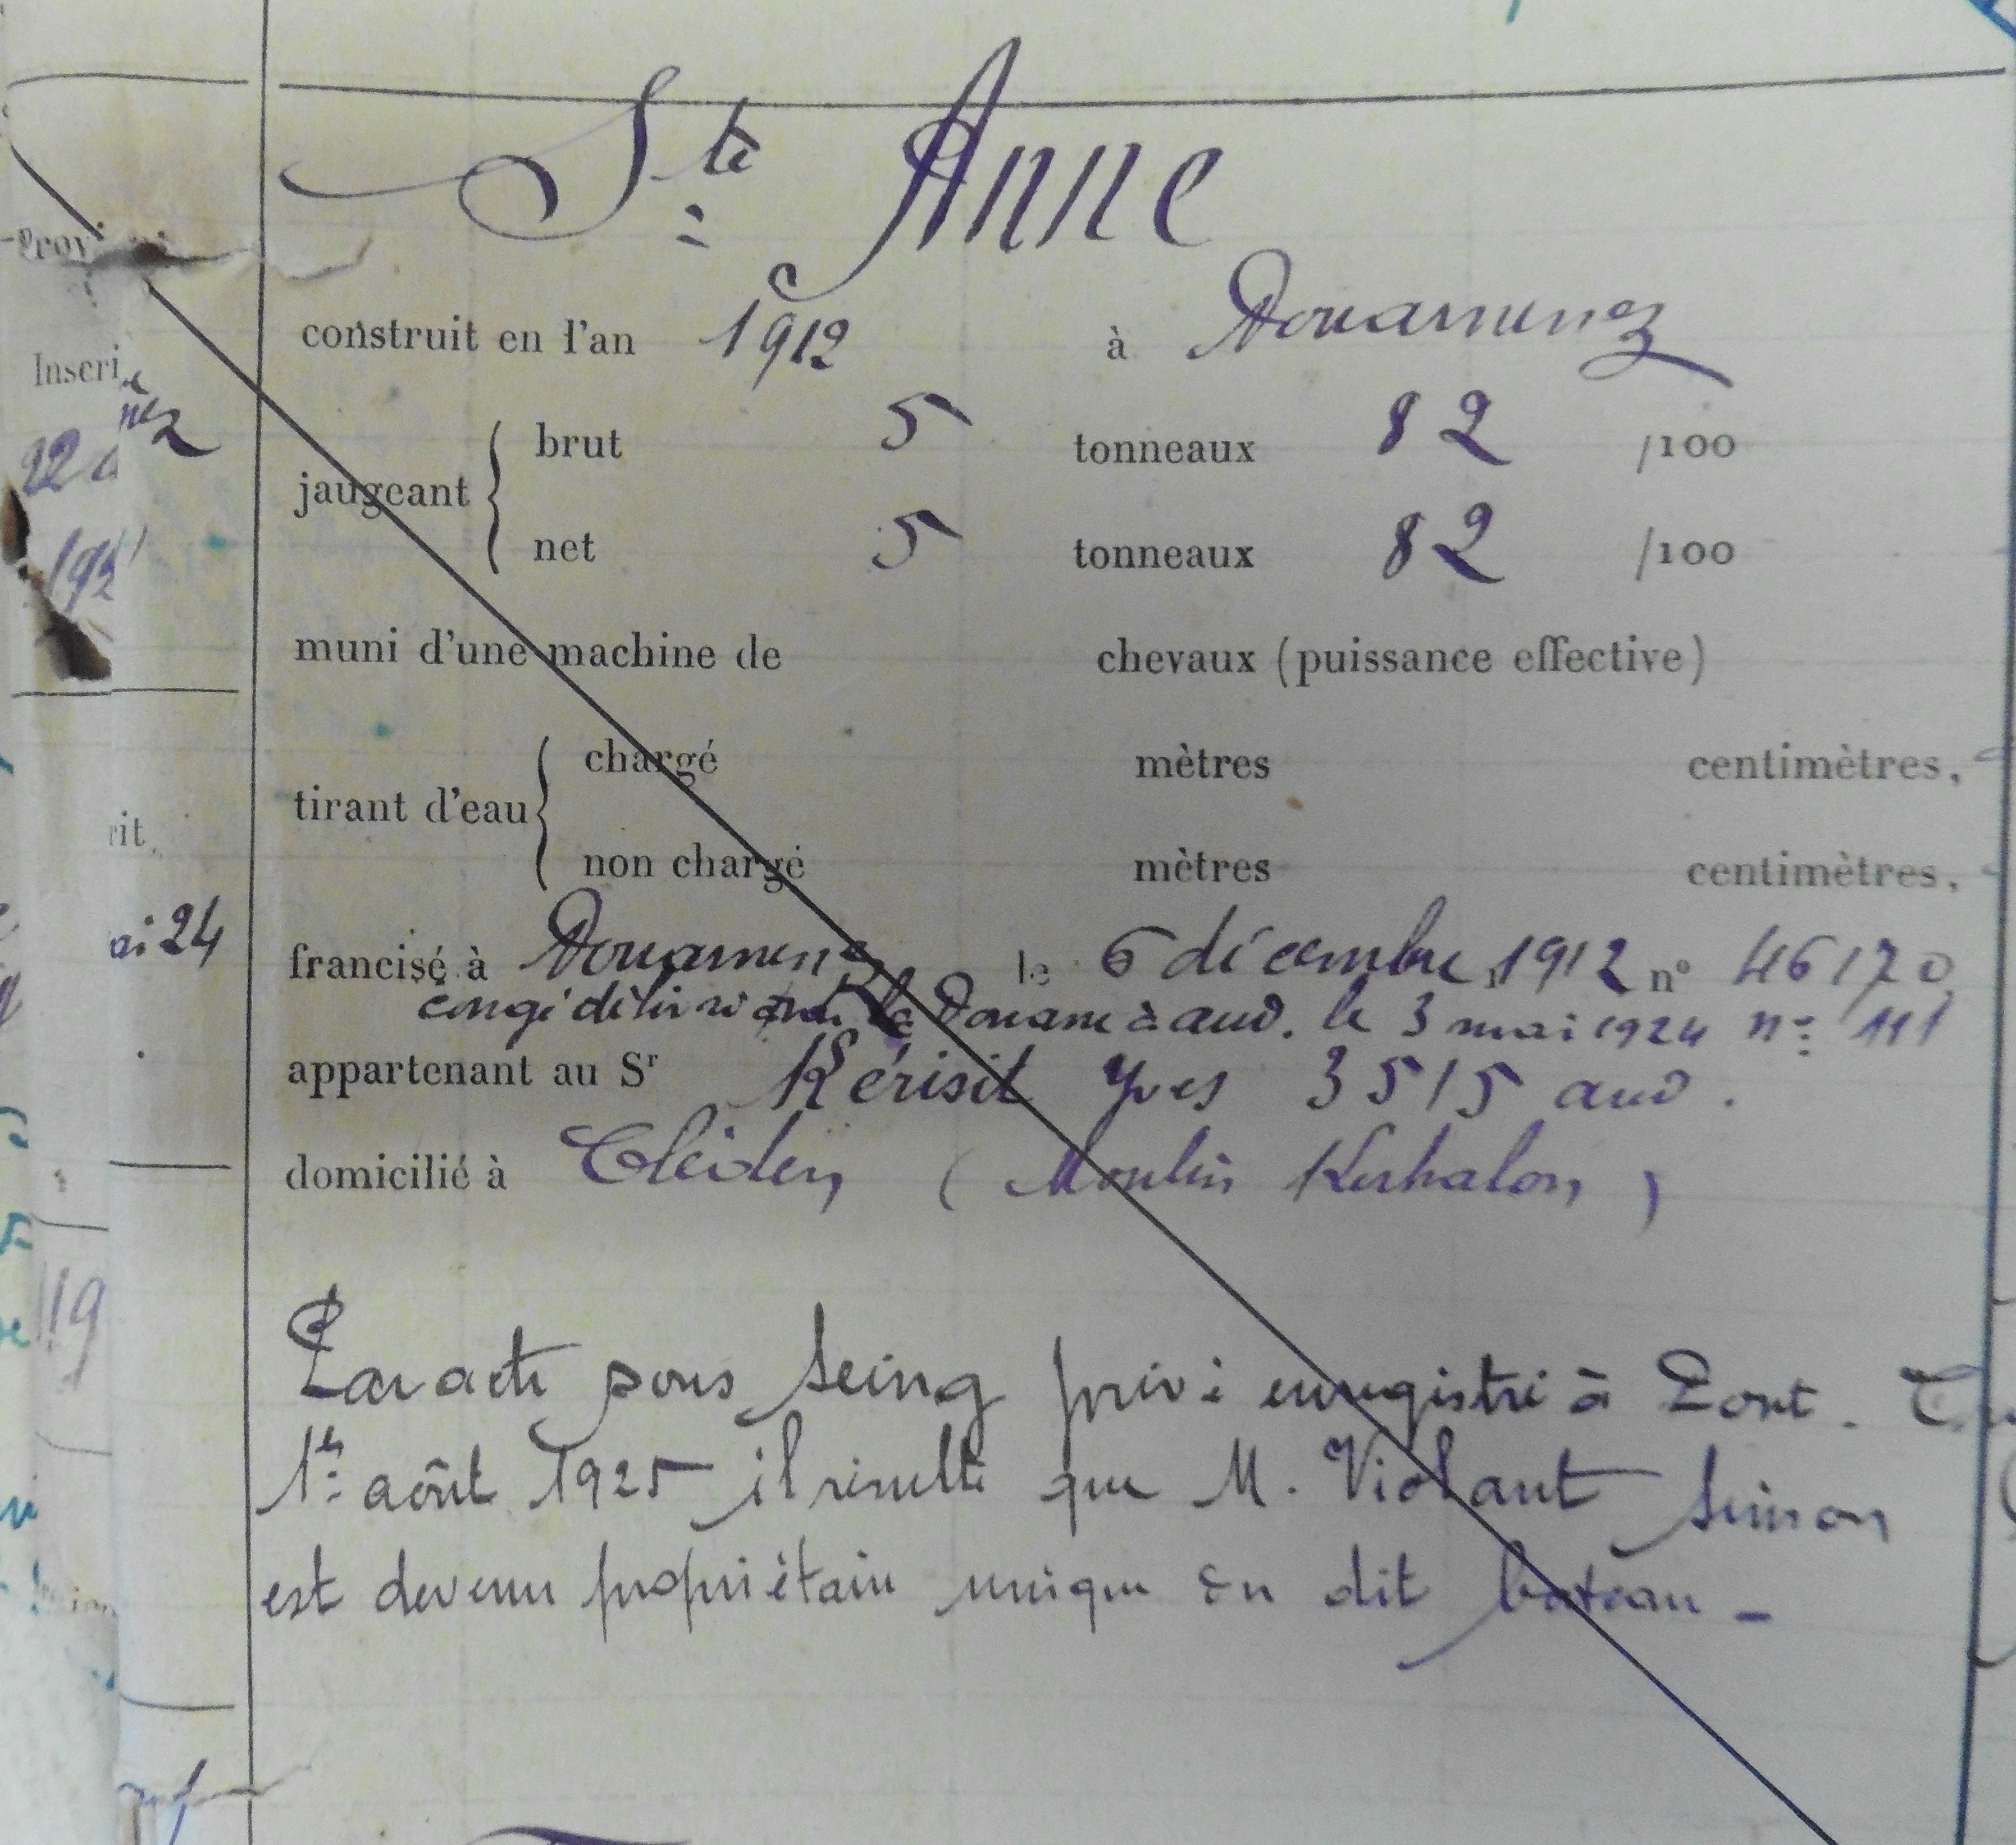 Ste Anne
construit en l'an 1912 à Douarnenez
jaugeant { brut 5 tonneaux 82 /100
net 5 tonneaux 82 /100
muni d'une machine de chevaux (puissance effective)
tirant d'eau { chargé mètres centimètres,
non chargé mètres centimètres,
francisé à Douarnenez le 6 décembre 1912 n° 46170
congé délivré la Douane à aud. le 3 mai 1924 n° 111
appartenant au Sr Kérisit Yves 3515 aud.
domicilié à Cléden (Moulin Kerhalon)
Par acte sous seing privé enregistré à Pont.
1er août 1925 il résulte que M. Violant Simon
est devenu propriétaire unique du dit bateau -
Inscri
22
192
ai 24
119